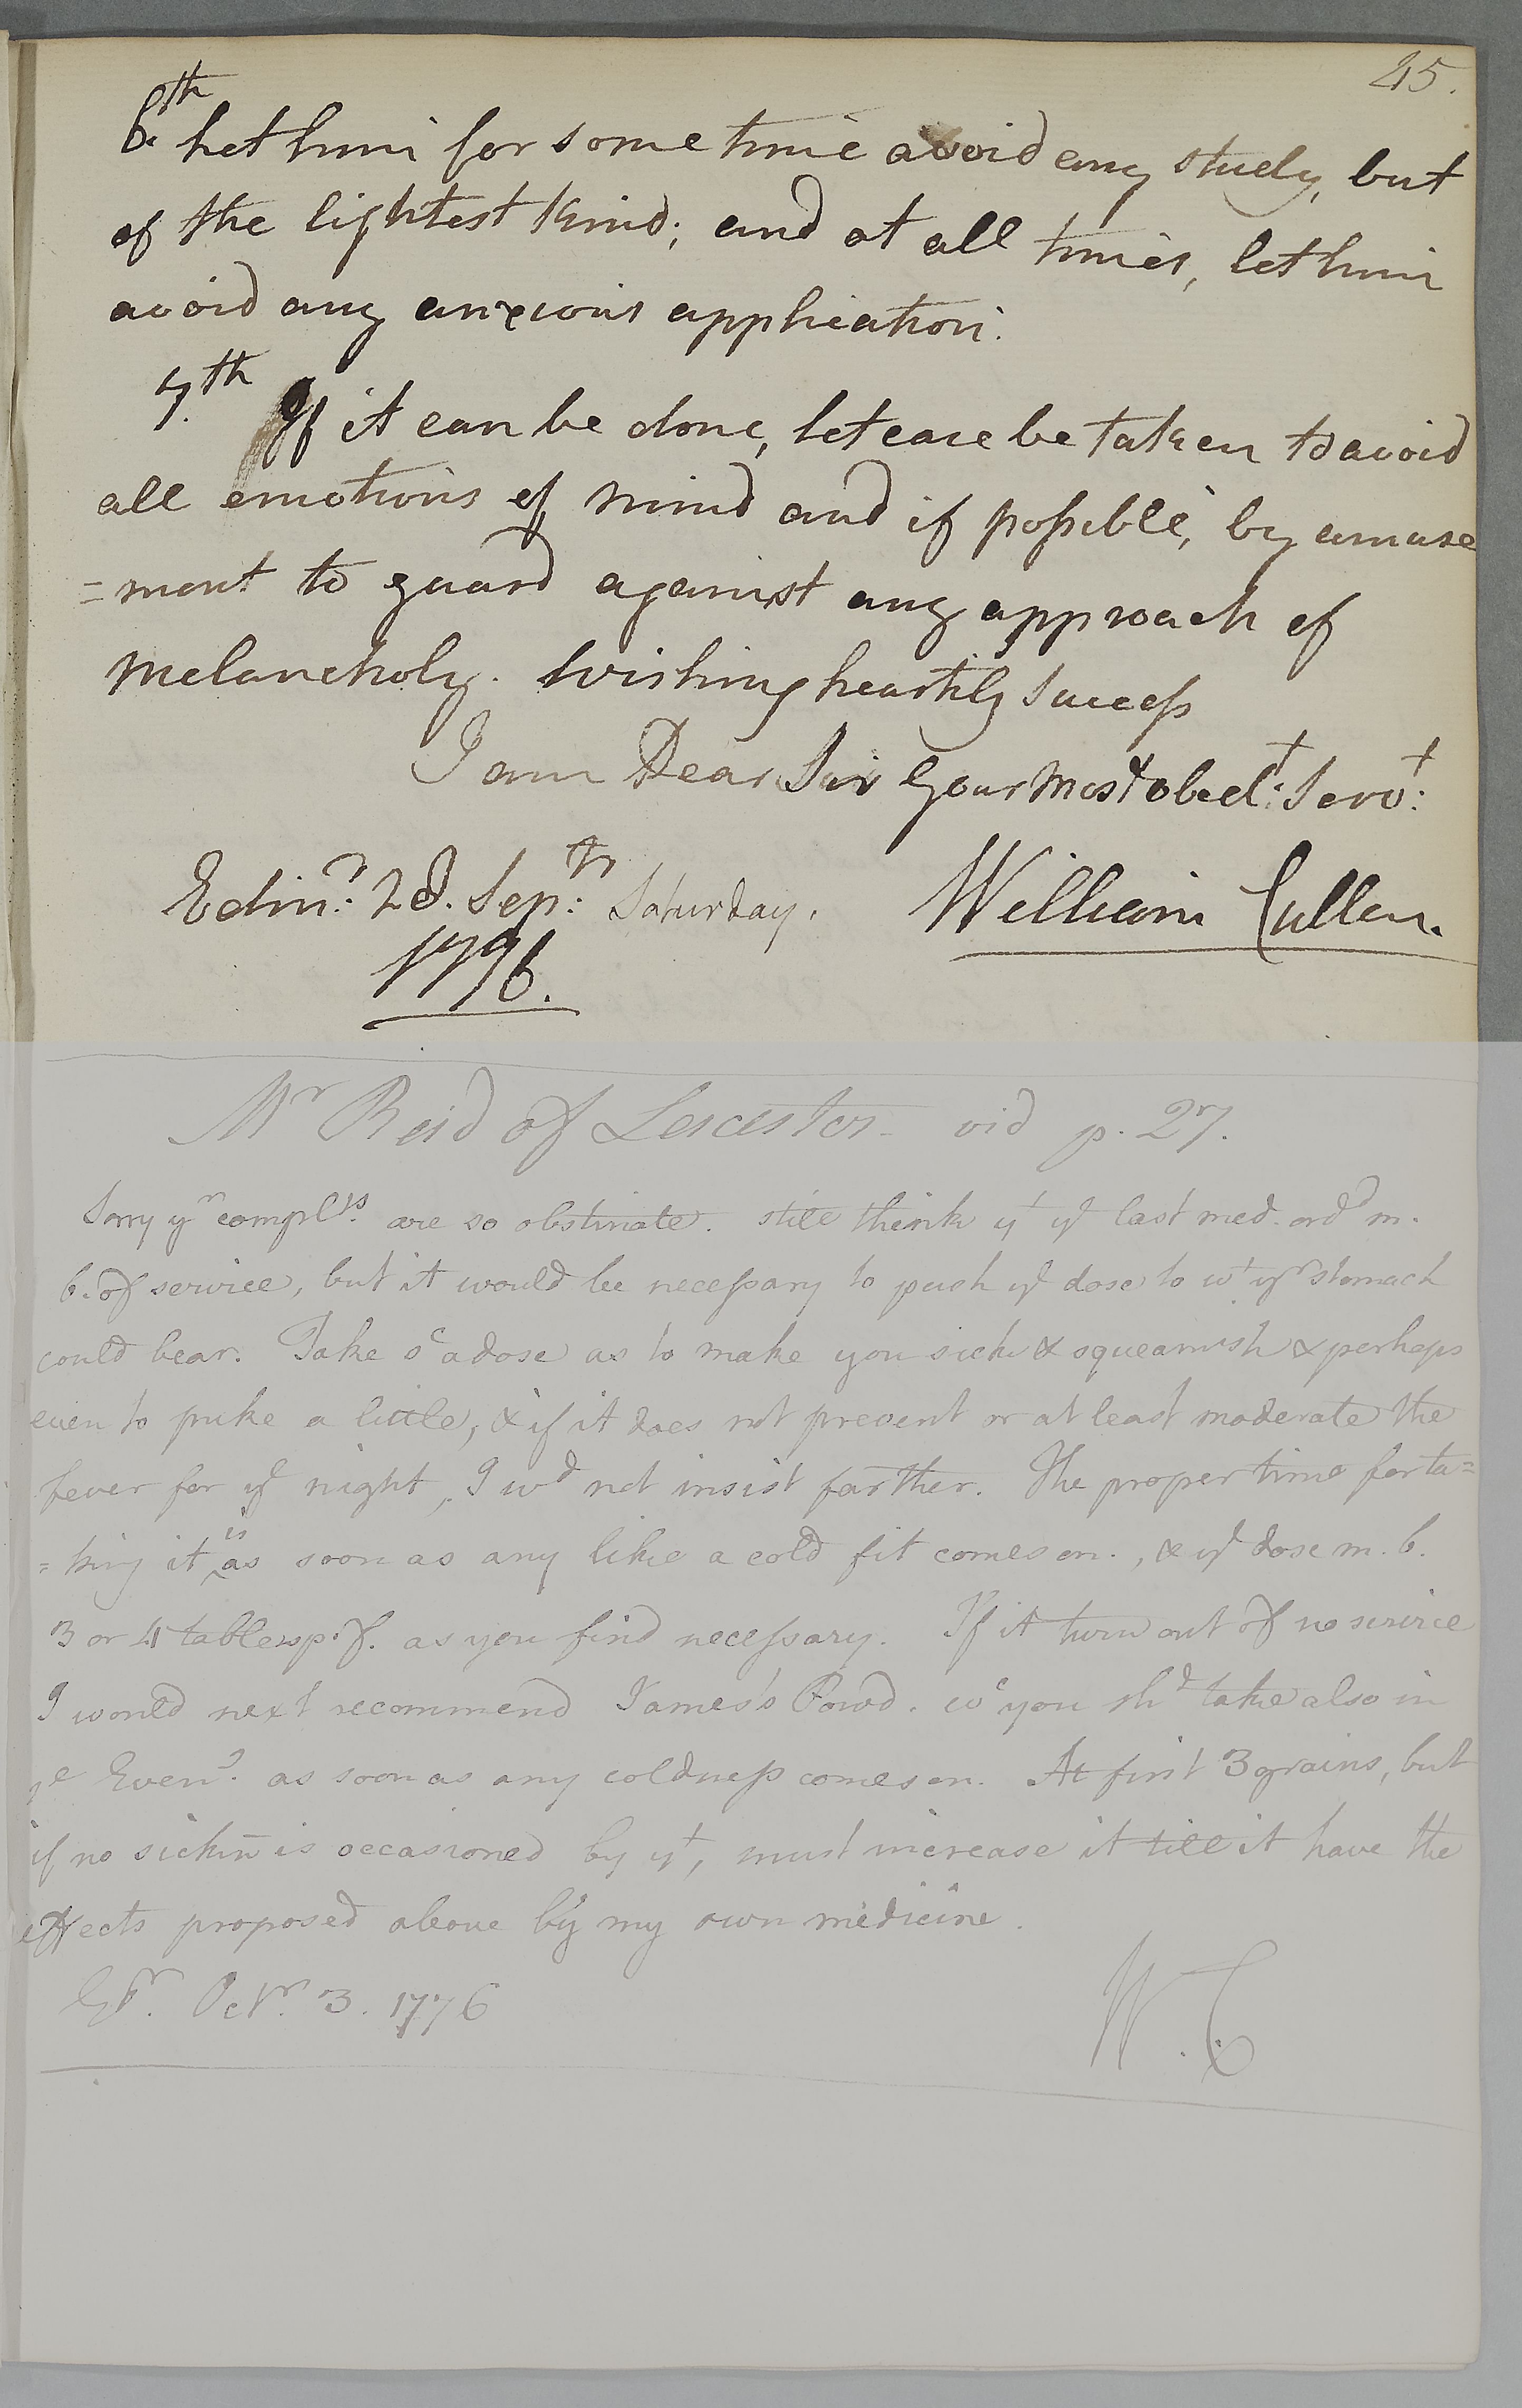 45.
6th. Let him for some time avoid any study, but
of the lightest kind; and at all times, let him
avoid any anxious application.
7th. If it can be done, let care be taken to avoid
all emotions of mind and if possible, by amuse
=ment to guard against any approach of
Melancholy. Wishing heartily Success
I am Dear Sir Your Most obedt: Servt:
Edinr: 28. Sepr: Saturday. William Cullen.
1776.
Mr Reid of Leicester vid p. 27.
Sorry yr complts. are so obstinate. still think yt ye last med. ordd m.
b. of service, but it would be necessary to push ye dose to wt yr stomach
could bear. Take sc a dose as to make you sick & squeamish & perhaps
even to puke a little, & if it does not prevent or at least moderate the
fever for ye night, I wd not insist farther. The proper time for ta=
=king it is as soon as any like a cold fit comes on., & ye dose m. b.
3 or 4 tablesp.f. as you find necessary. If it turn out of no service
I would next recommend James's Powd. wc you shd take also in
ye Eveng. as soon as any coldness comes on. At first 3 grains, but
if no sickn̅ is occasioned by yt, must increase it till it have the
effects proposed above by my own medicine.
Octr. 3. 1776 W.C.